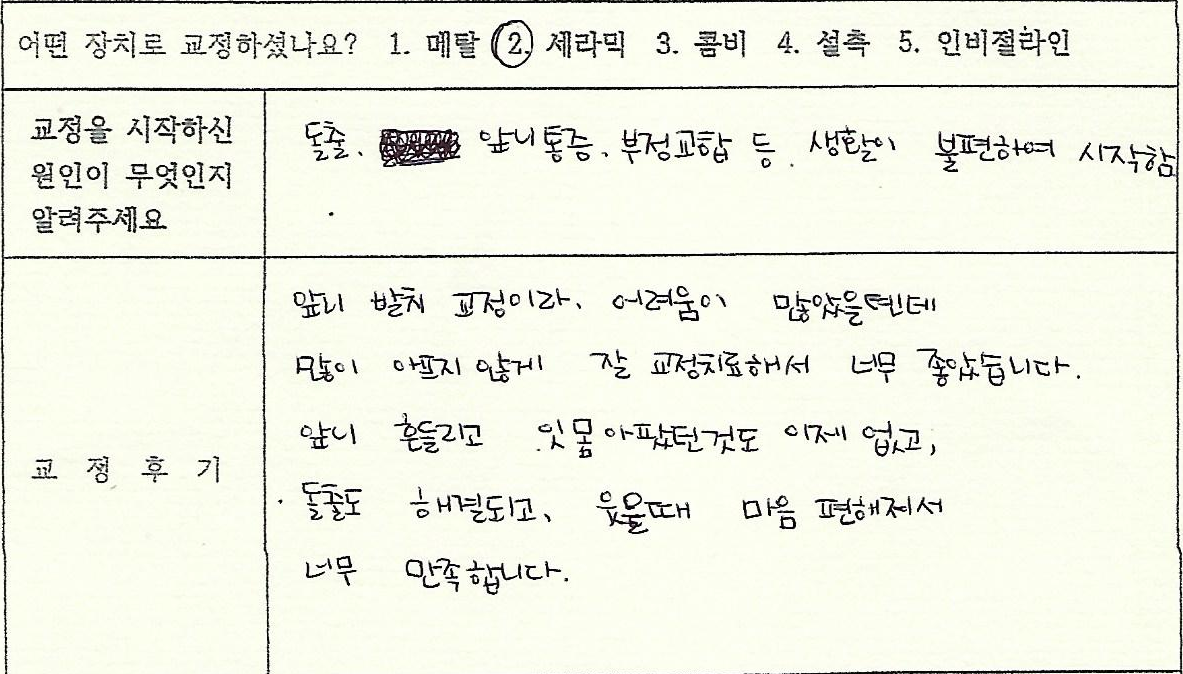 어떤 장치로 교정하셨나요? 1. 메탈 2. 세라믹 3. 콤비 4. 설측 5. 인비절라인
교정을 시작하신
원인이 무엇인지
알려주세요
돌출, 앞니통증, 부정교합 등 생활이 불편하여 시작함
교 정 후 기
앞니 발치 교정이라, 어려움이 많았을텐데
많이 아프지 않게 잘 교정치료해서 너무 좋았습니다.
앞니 흔들리고 잇몸아팠던것도 이제 없고,
돌출도 해결되고, 웃을때 마음 편해져서
너무 만족합니다.